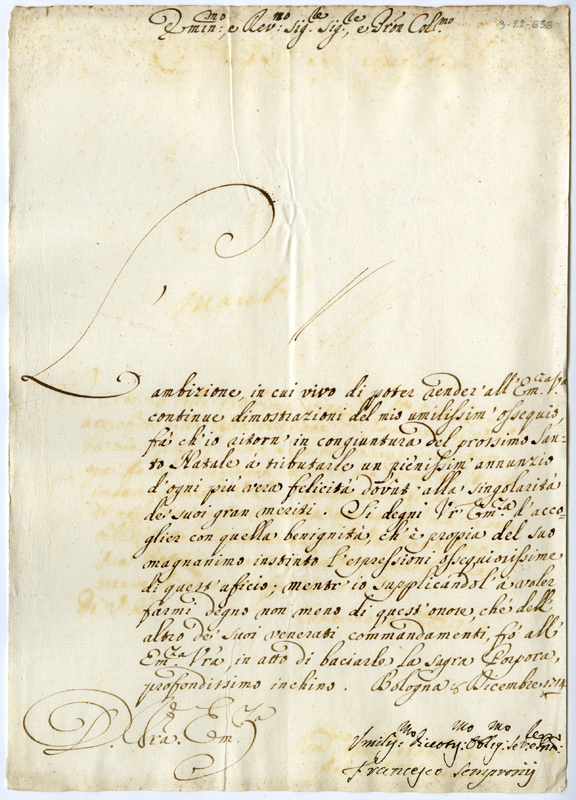 3-22-656
Emin:mo e Rev:mo Sig:re Sig:re, e Pron Coll:mo
L'
ambizione, in cui vivo di poter render all'Em:za S:
continue dimostrazioni del mio umilissim' ossequio,
fa ch'io ritorn' in congiuntura del prossimo San-
to Natale à tributarle un pienissim' annunzio
d'ogni più vera felicità dovut' alla singolarità
de' suoi gran meriti. Si degni Vr'Em:za d'acco-
glier con quella benignità, ch'è propria del suo
magnanimo instinto l'espressioni ossequiosissime
di quest'uficio; mentr'io supplicandol' à voler
farmi degno non meno di quest'onore, che dell'
altro de' suoi venerati commandamenti, fò all'
Em:za Vra, in atto di baciarle la Sagra Porpora,
profondissimo inchino. Bologna Dicembre 1714
D. Vra. Em:za
Vmilis:mo Divotis:mo Oblig:mo Ser:re
Francesco Sempronij